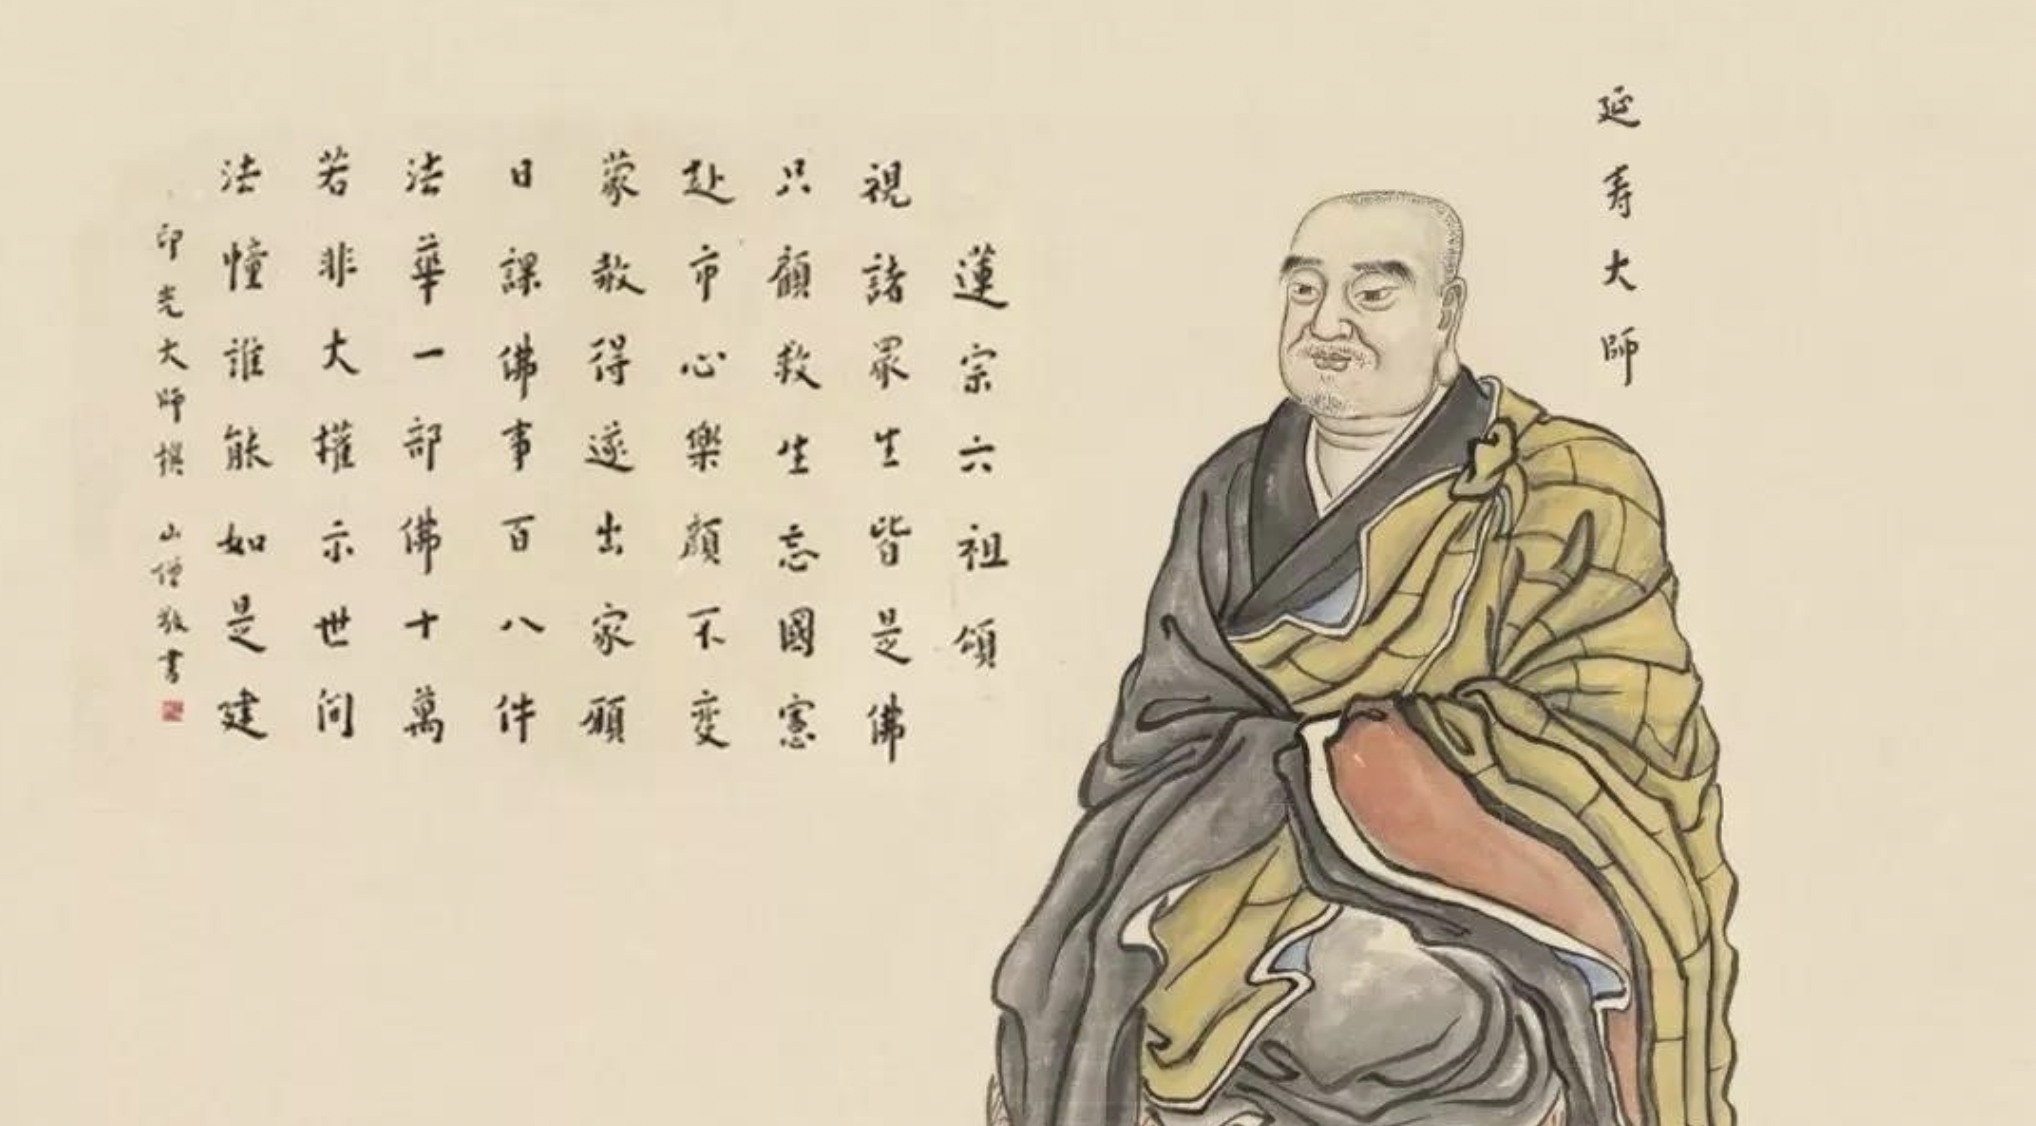 延寿大師
蓮宗六祖頌
視諸眾生皆是佛
只顧救生忘國憲
赴市心樂顏不變
蒙赦得遂出家願
日課佛事百八件
法華一部佛十萬
若非大權示世间
法幢誰能如是建
印光大师撰 山僧敬書